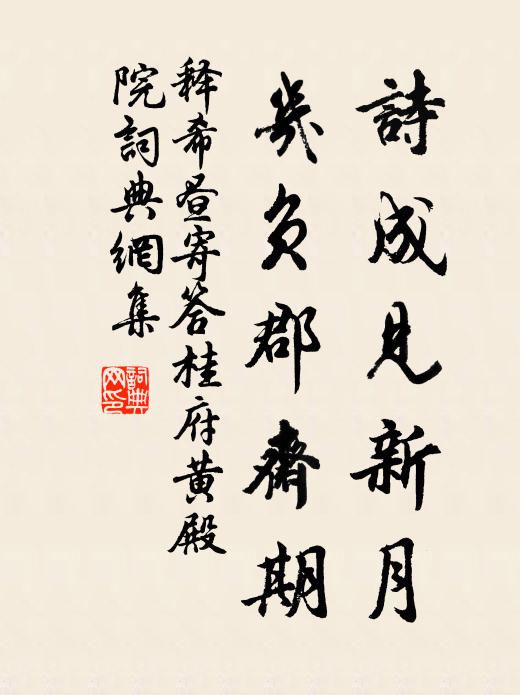 詩成見新月
幾負郡齋期
释希昼寄答桂府黄殿
院詞典網集
詞典
网印